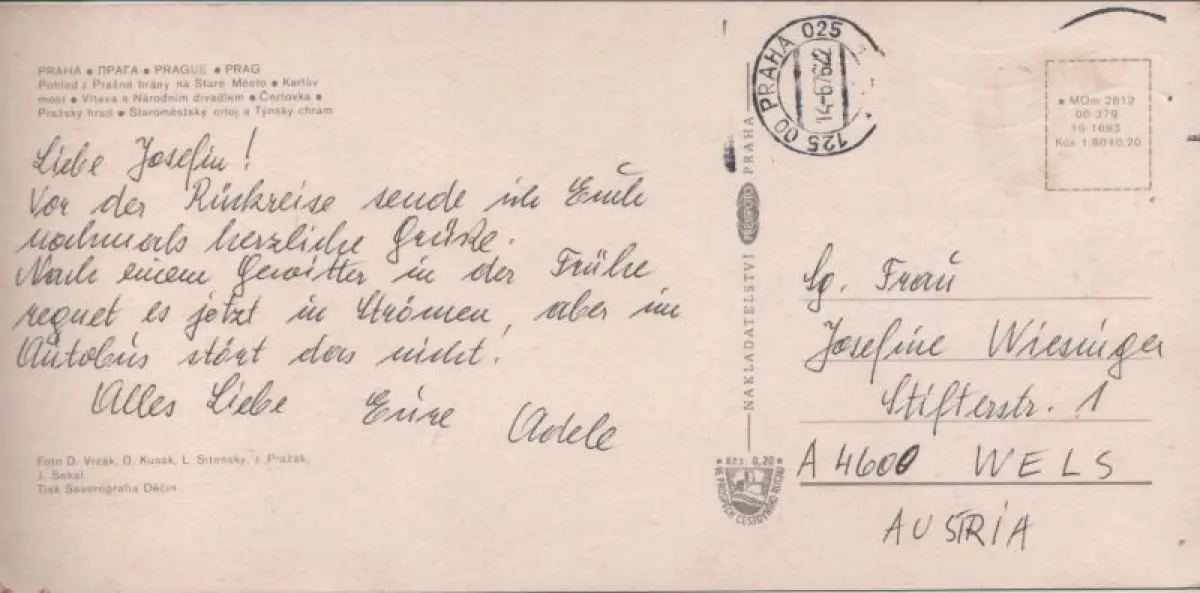 PRAHA • ПРАГА • PRAGUE • PRAG
Pohled z Prašné brány na Staré Město • Karlův
most • Vltava s Národním divadlem • Čertovka •
Pražský hrad • Staroměstský orloj a Týnský chrám
Liebe Josefin!
Vor der Rückreise sende ich Euch
nochmals herzliche Grüße.
Nach einem Gewitter in der Frühe
regnet es jetzt in Strömen, aber im
Autobus stört das nicht.
Alles Liebe Eure Adele
Foto D. Vrčák, D. Kusák, L. Sitenský, J. Pražák,
J. Sekal
Tisk Severografia Děčín
NAKLADATELSTVÍ PRESSFOTO PRAHA
Kčs 0,20
VE PROSPĚCH CESTOVNÍHO RUCHU
125 00 PRAHA 025
• MDm 2812
00-379
16-1693
Kčs 1,80+0,20
Sg. Frau
Josefine Wiesinger
Stifterstr. 1
A 4600 WELS
AUSTRIA